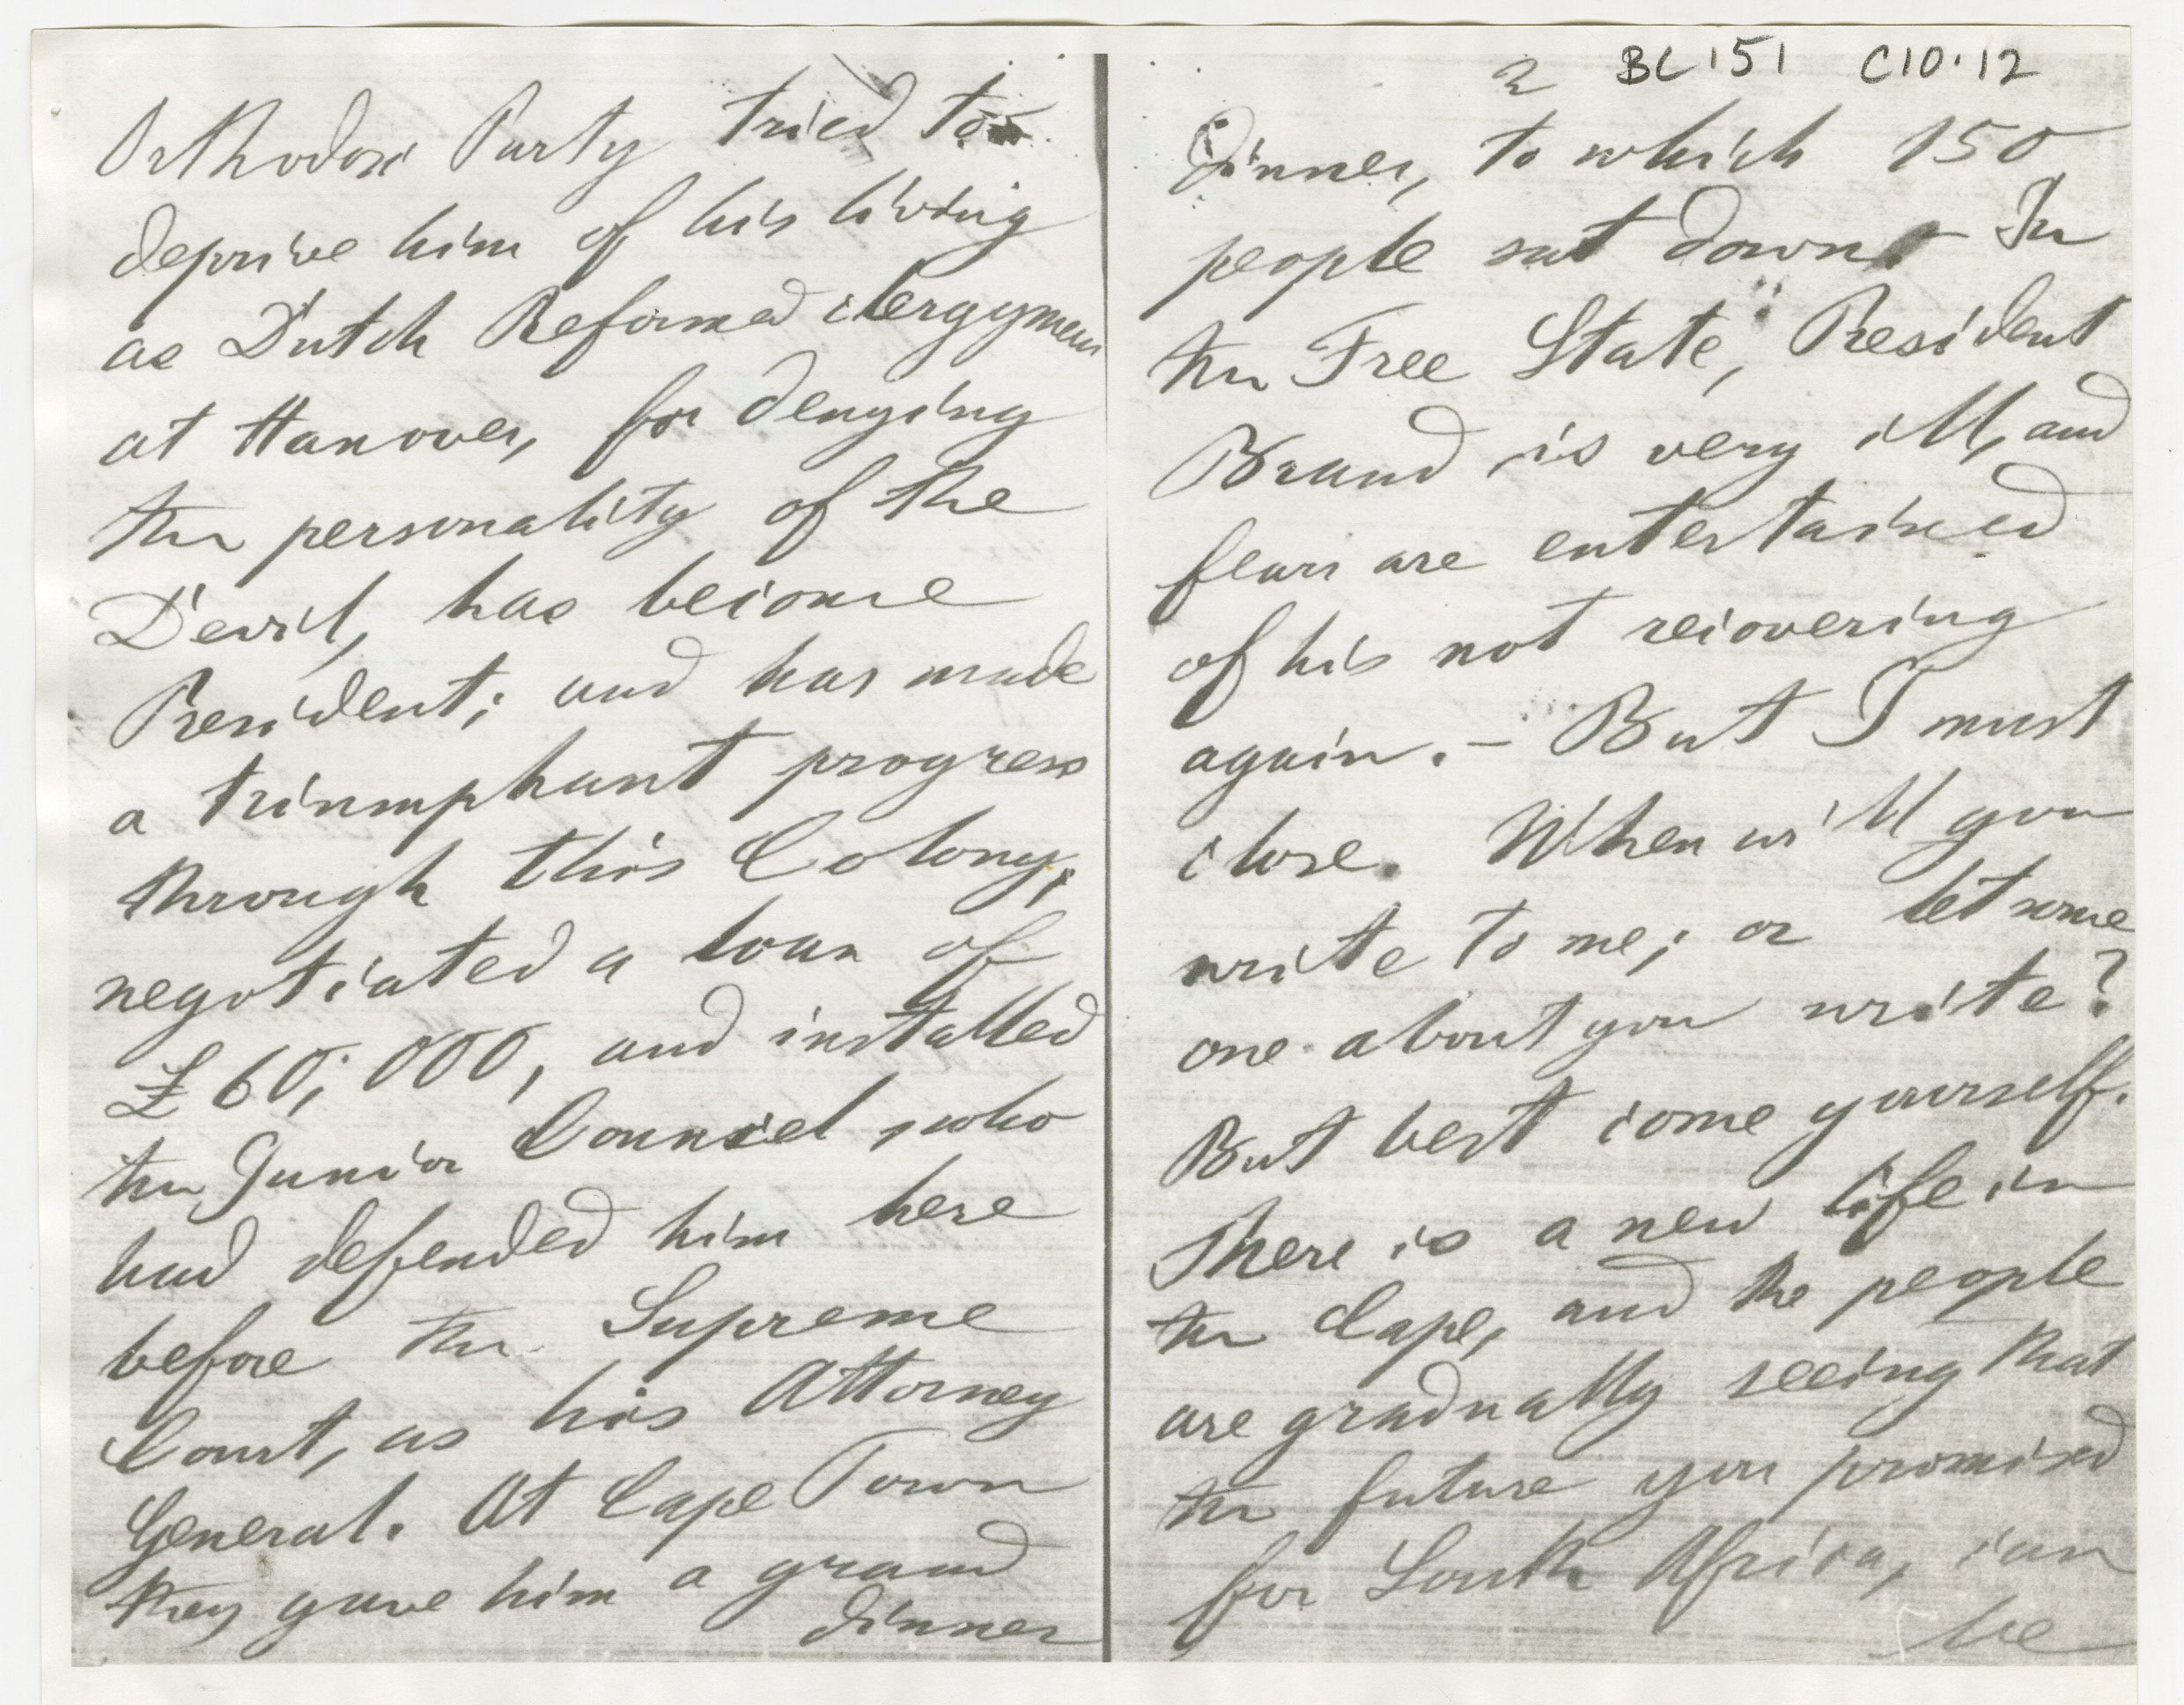 Orthodox Party tried to
deprive him of his living
as Dutch Reformed clergyman
at Hanover, for denying
the personality of the
Devil, has become
President; and has made
a triumphant progress
through this Colony;
negotiated a loan of
£60;000, and installed
the Junior Counsel who
had defended him here
before the Supreme
Court, as his Attorney
General. At Cape Town
they gave him a grand
dinner
2 BC 151 C10.12
dinner, to which 150
people sat down. – In
the Free State, President
Brand is very ill, and
fears are entertained
of his not recovering
again. – But I must
close. When will you
write to me; or let some
one about you write?
But best come yourself.
There is a new life in
the Cape, and the people
are gradually seeing that
the future you promised
for South Africa, can
be